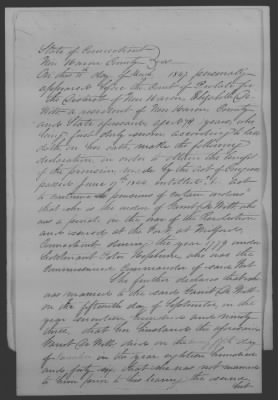 State of Connecticut
New Haven County
On this day of 1847 personally
appeared before the Court of Probate for
the District of New Haven Elizabeth
a resident of New Haven County
and State aforesaid aged 74 years, who
being first duly sworn according to law
doth on her oath, make the following
declaration, in order to obtain the benefit
of the provision made by the act of Congress
passed June 17th 1844 entitled "An act
to continue the pensions of certain widows"
that she is the widow of who
was a in the war of the Revolution
and served at the Fort at Milford
Connecticut during the year under
Lieutenant Peter who was the
Commissioned Commander of said Fort
She further declares that she
was married to the said
on the fifteenth day of September in the
year seventeen hundred and ninety
three, that her husband the aforesaid
died on the day of
in the year eighteen hundred
and forty six that she was not married
to him prior to his leaving the service
but